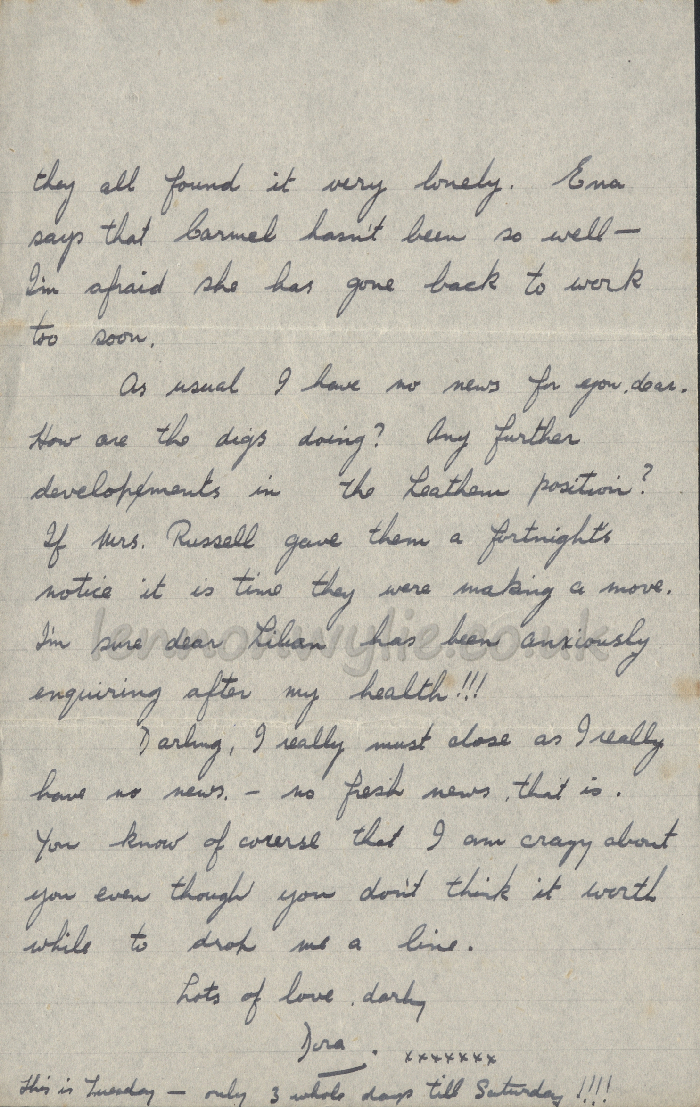 they all found it very lonely. Ena
says that Carmel hasn't been so well —
I'm afraid she has gone back to work
too soon.
As usual I have no news for you, dear.
How are the digs doing? Any further
developements in the Leathem position?
If Mrs. Russell gave them a fortnight's
notice it is time they were making a move.
I'm sure dear Lilian has been anxiously
enquiring after my health!!!
lennonwylie.co.uk
Darling, I really must close as I really
have no news. — no fresh news, that is.
You know of course that I am crazy about
you even though you don't think it worth
while to drop me a line.
Lots of love, darling
Dora. xxxxxxx
This is Tuesday — only 3 whole days till Saturday!!!!